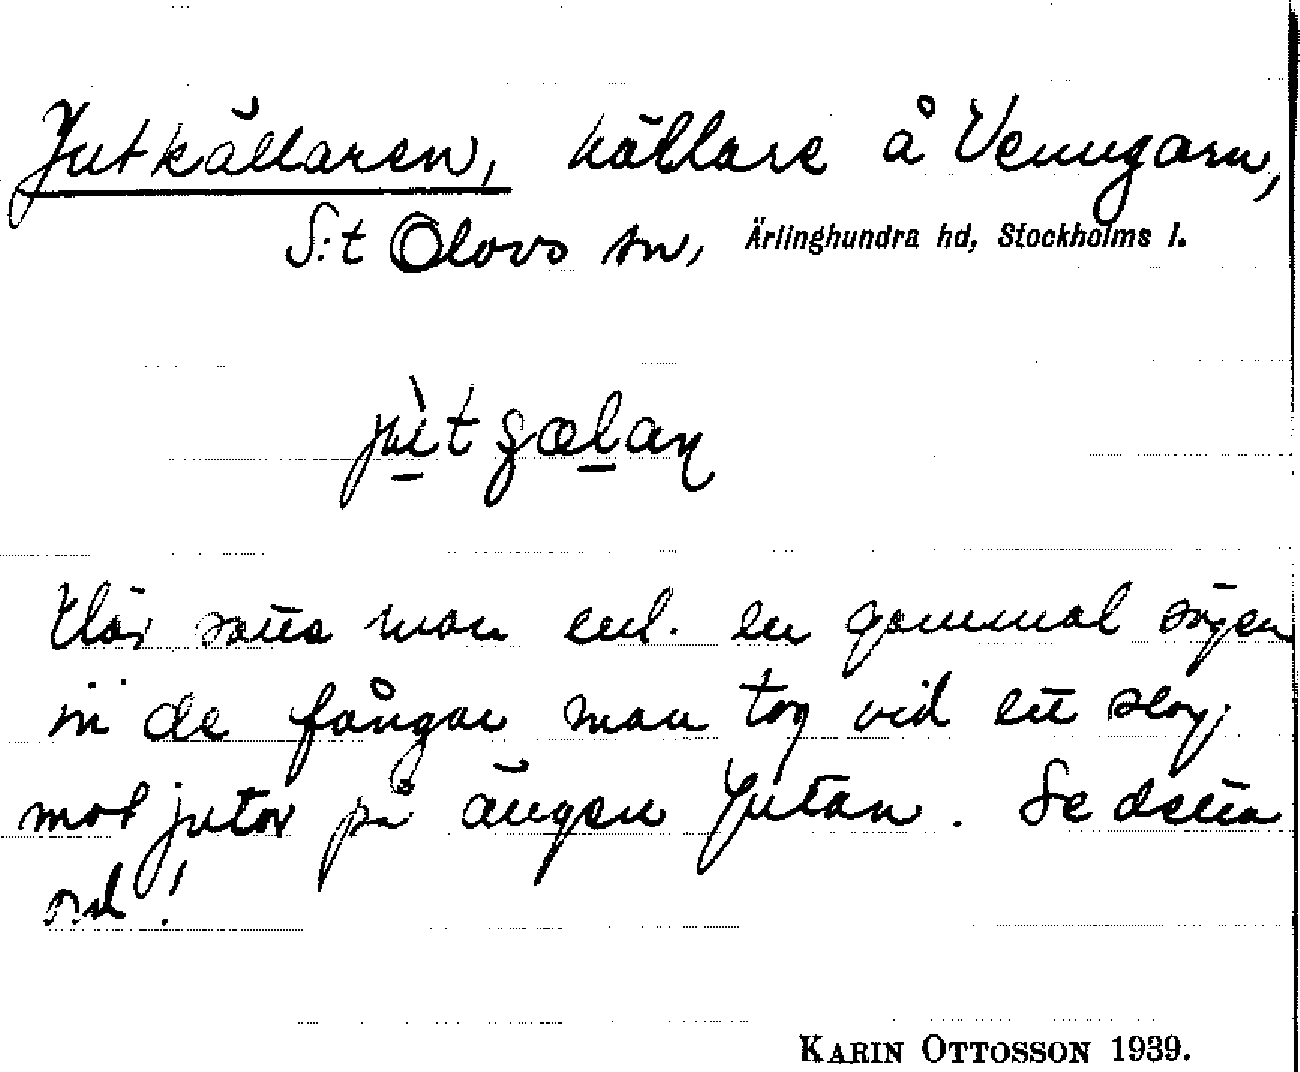 Jutkällaren, källare å Venngarn,
S:t Olovs sn, Ärlinghundra hd, Stockholms l.
Här satte man enl. en gammal sägen
in de fångar man tog vid ett slag
mot jutar på ängen Jutan. Se detta
ord!
KARIN OTTOSSON 1939.